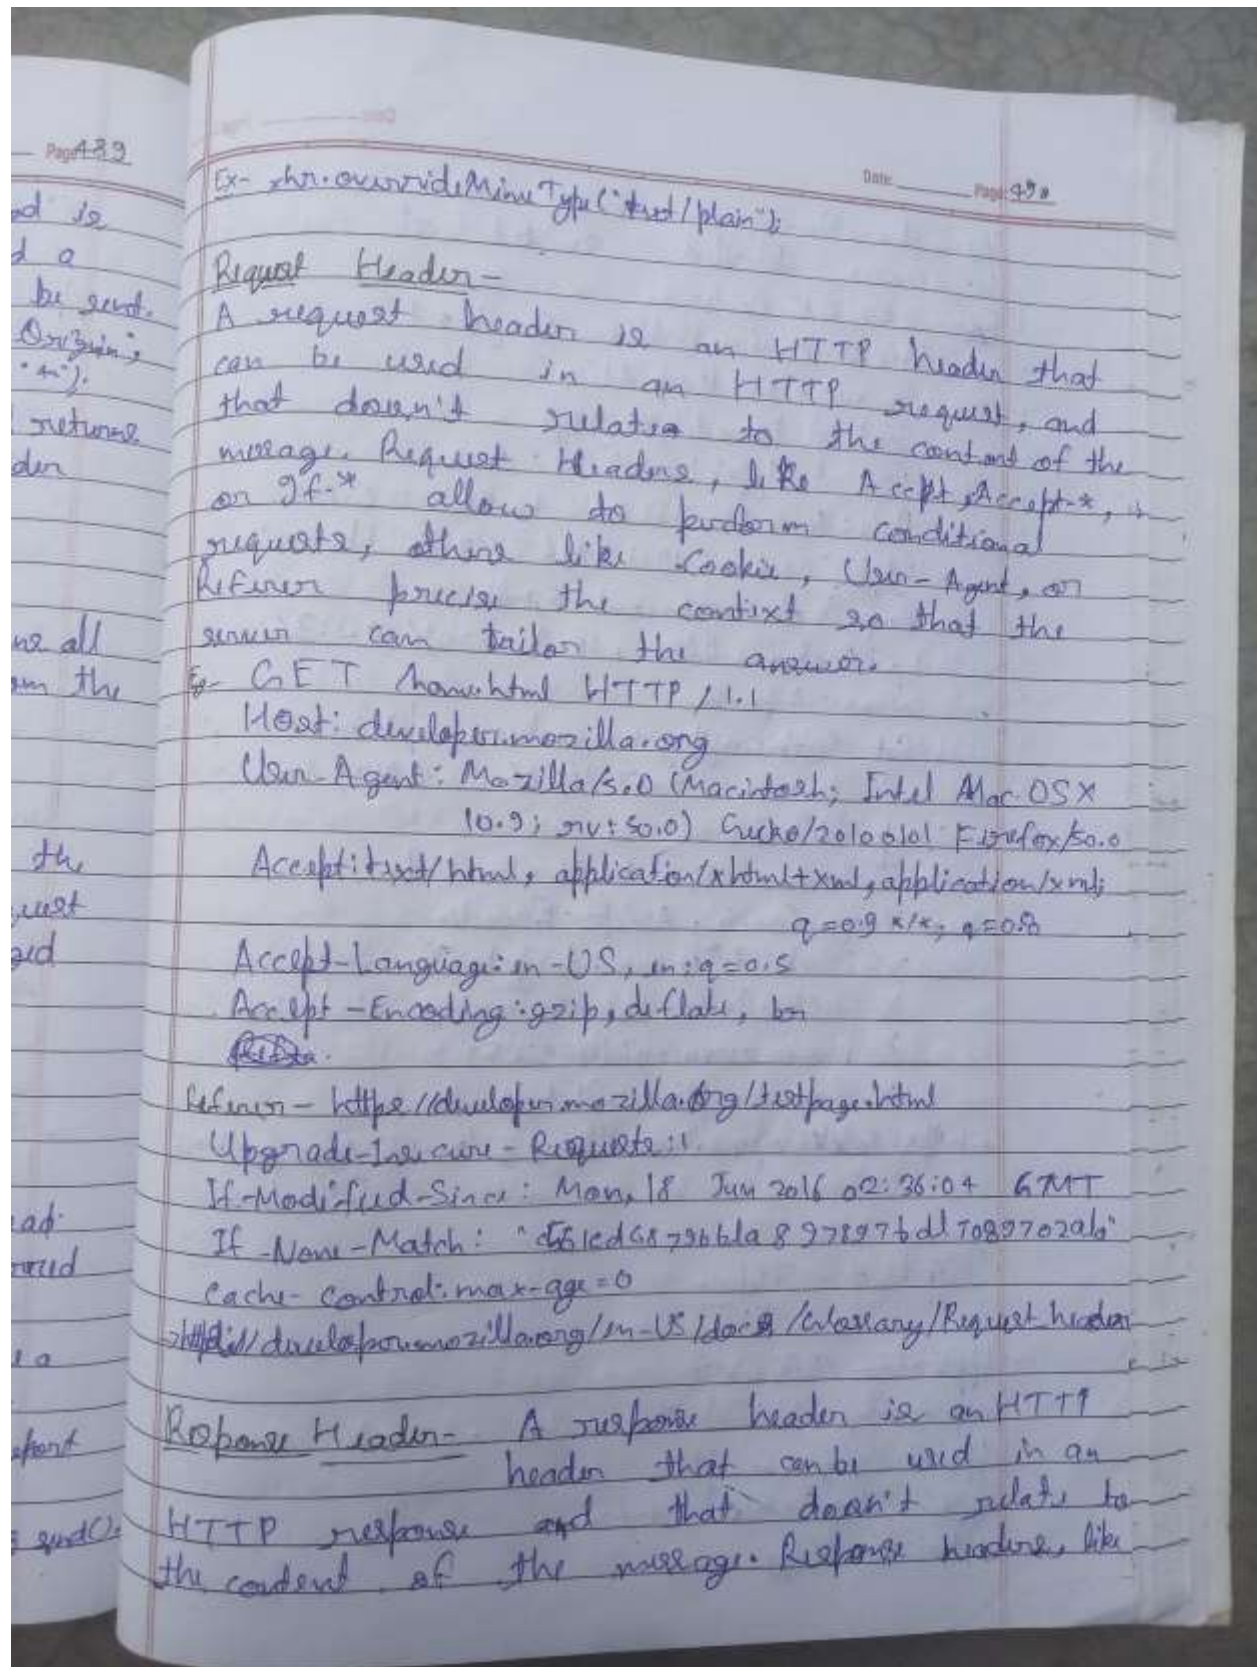 Page 489
ed is
d a
be send.
Origin",
"*").
returns
der
ns all
om the
the
uest
ad
a
send().
Date Page 490
Ex- xhr.overrideMimeType("text/plain");
Request Header-
A request header is an HTTP header that
can be used in an HTTP request, and
that doesn't relates to the content of the
message. Request Headers, like Accept, Accept-*,
or If-* allow to perform conditional
requests, others like Cookie, User-Agent, or
Referer precise the context so that the
server can tailor the answer.
Eg- GET home.html HTTP/1.1
Host: developer.mozilla.org
User-Agent: Mozilla/5.0 (Macintosh; Intel Mac OSX
10.9; rv:50.0) Gecko/20100101 Firefox/50.0
Accept: text/html, application/xhtml+xml, application/xml;
q=0.9 */*; q=0.8
Accept-Language: en-US, en;q=0.5
Accept-Encoding: gzip, deflate, br
Referer- https//developer.mozilla.org/testpage.html
Upgrade-Insecure-Requests:1
If-Modified-Since: Mon, 18 Jun 2016 02:36:04 GMT
If None-Match:
Cache-Control: max-age=0
developer.mozilla.org/en-US/docs/Glossary/Request header
Response Header- A response header is an HTTP
header that can be used in an
HTTP response and that doesn't relate to
the content of the message. Response headers, like